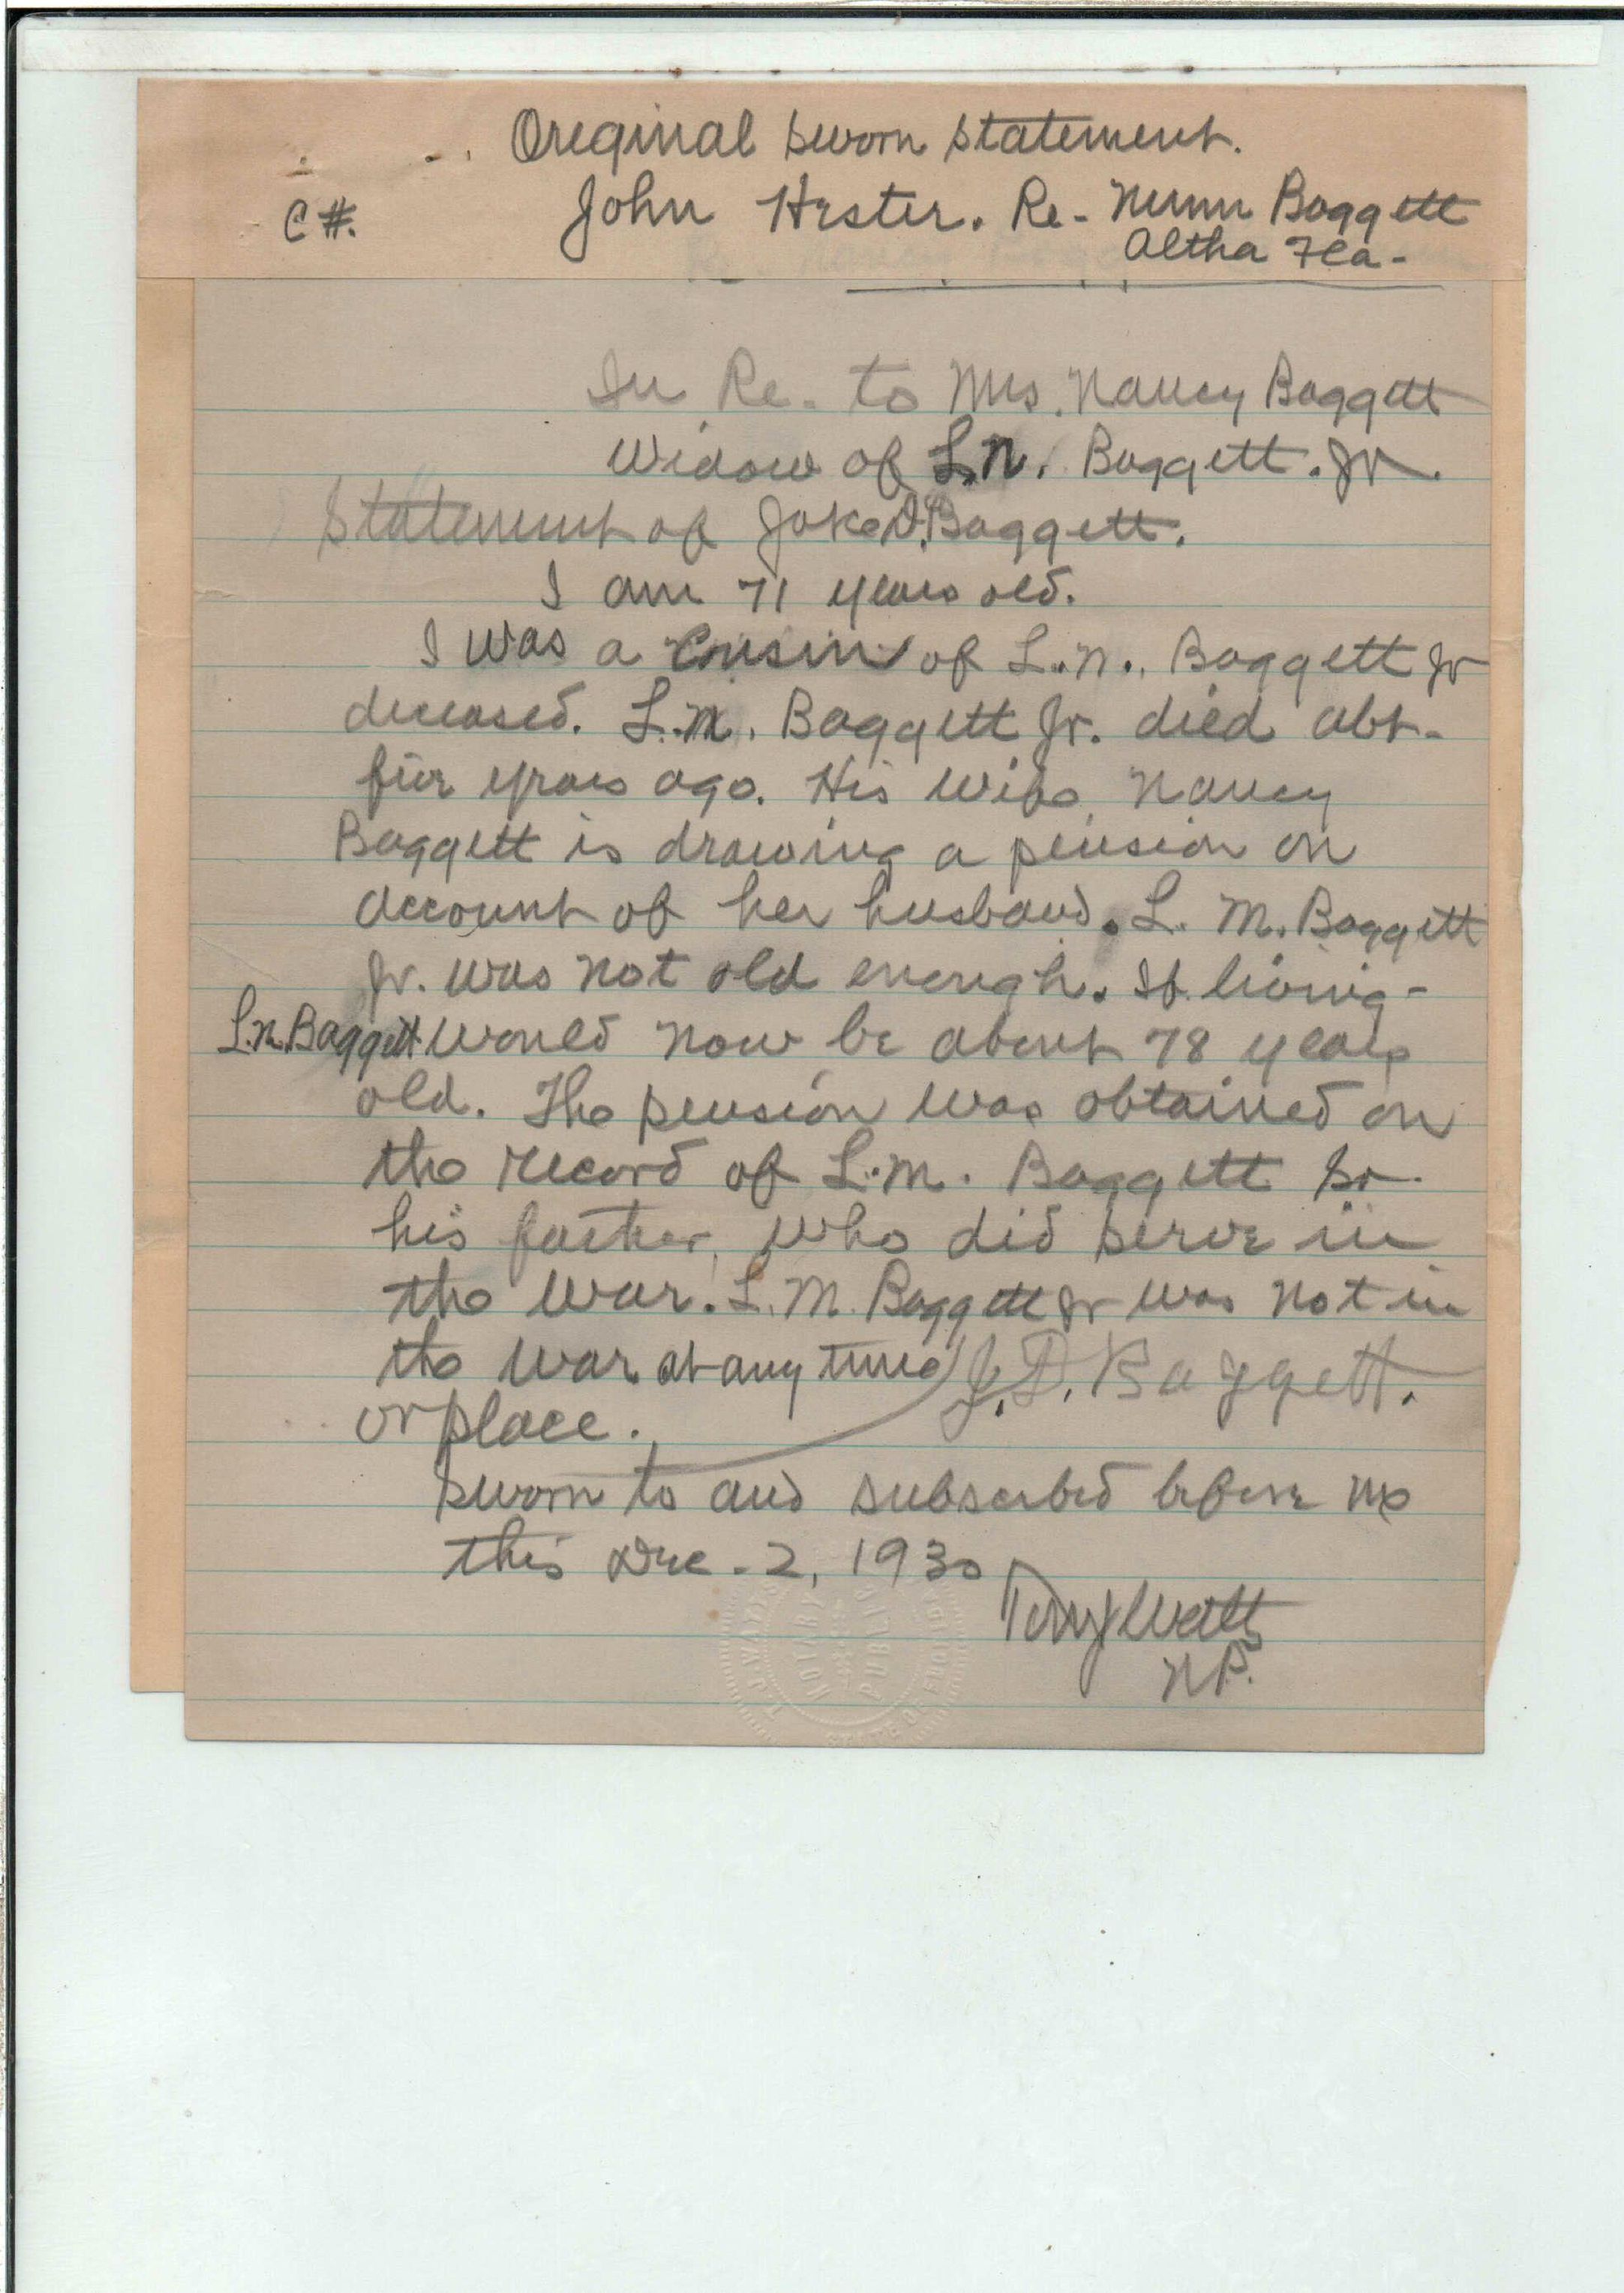 Original Sworn Statement.
C #. John Hester. Re - Nunn Baggett
Altha Fla -
In Re. to Mrs. Nancy Baggett
Widow of L.N. Baggett. Jr.
Statement of Jake D. Baggett.
I am 71 years old.
I was a Cousin of L.N. Baggett Jr
deceased. L.N. Baggett Jr. died abt.
five years ago. His wife Nancy
Baggett is drawing a pension on
account of her husband. L. M. Baggett
Jr. was not old enough. If living -
L.N. Baggett would now be about 78 years
old. The pension was obtained on
the record of L.M. Baggett Sr.
his father, who did serve in
the war. L. M. Baggett Jr was not in
the war at any time J. D. Baggett.
or place.
Sworn to and subscribed before me
this Dec - 2, 1930
Watts
N P.
NOTARY PUBLIC
STATE OF